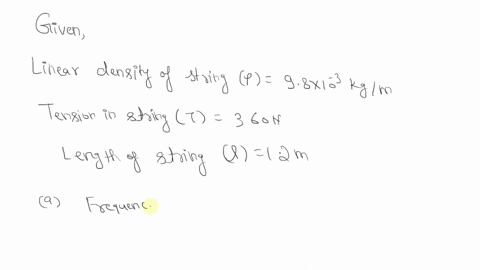 Given,
Linear density of string (ρ) = 9.8×10⁻³ kg/m
Tension in string (T) = 360N
Length of string (l) = 1.2 m
(a) Frequenc